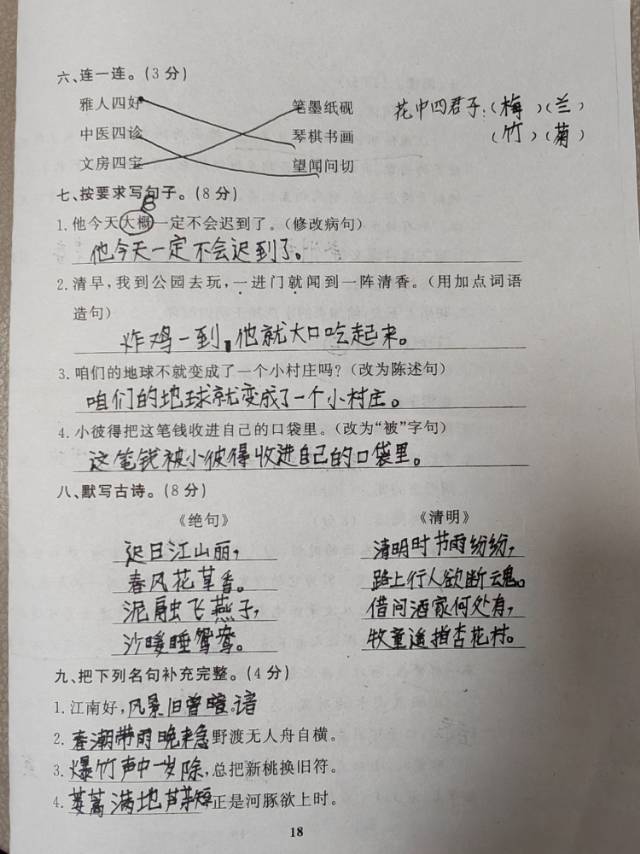 六、连一连。(3分)
雅人四好 笔墨纸砚 花中四君子:(梅)(兰)
中医四诊 琴棋书画 (竹)(菊)
文房四宝 望闻问切
七、按要求写句子。(8分)
1.他今天大概一定不会迟到了。(修改病句)
他今天一定不会迟到了。
2.清早,我到公园去玩,一进门就闻到一阵清香。(用加点词语
造句)
炸鸡一到,他就大口吃起来。
3.咱们的地球不就变成了一个小村庄吗?(改为陈述句)
咱们的地球就变成了一个小村庄。
4.小彼得把这笔钱收进自己的口袋里。(改为“被”字句)
这笔钱被小彼得收进自己的口袋里。
八、默写古诗。(8分)
《绝句》 《清明》
迟日江山丽, 清明时节雨纷纷,
春风花草香。 路上行人欲断魂。
泥融飞燕子, 借问酒家何处有,
沙暖睡鸳鸯。 牧童遥指杏花村。
九、把下列名句补充完整。(4分)
1.江南好,风景旧曾谙
2.春潮带雨晚来急野渡无人舟自横。
3.爆竹声中一岁除,总把新桃换旧符。
4.蒌蒿满地芦芽短正是河豚欲上时。
18